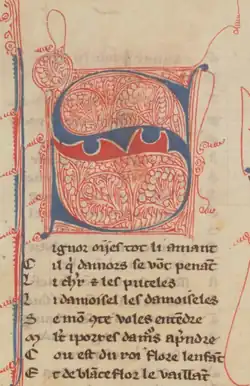 Signor oijes tot li amant
C il q̇ damors se vōt penāt
L i chr̄ & les puceles
L i damoisel les damoiseles
S e mon ꝯte voles entēdre
M lt i porres damo᷒s apn̄dre
C ou est du roi flore lenfāt
E t de blāceflor le vaillāt